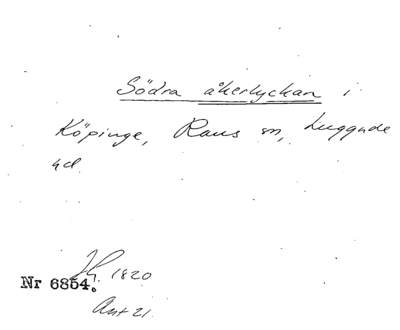 Södra åkerlyckan i
Köpinge, Raus sn, Luggude
hd.
1820
Nr 6854.
Ant 21.